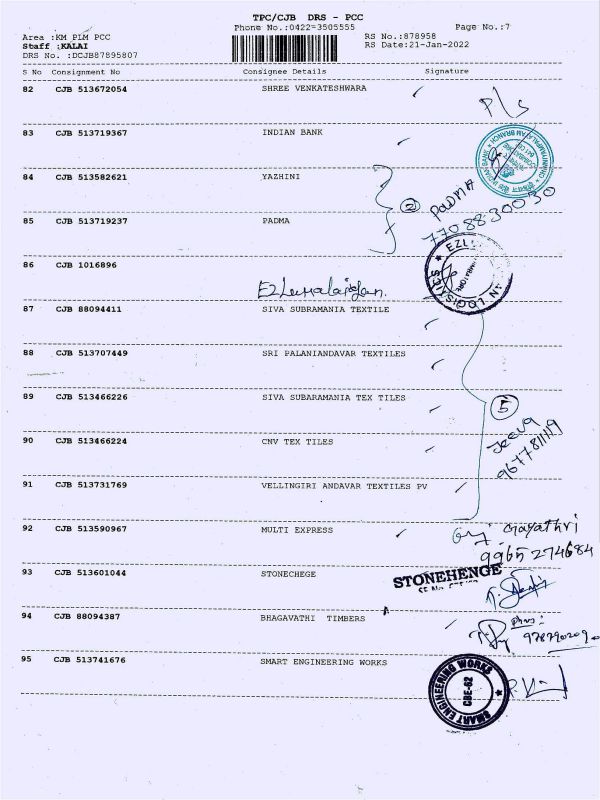 TPC/CJB DRS - PCC
Phone No.:0422-3505555 Page No.:7
Area :KM PLM PCC RS No.:878958
Staff :KALAI RS Date:21-Jan-2022
DRS No. :DCJB87895807
S No Consignment No Consignee Details Signature
82 CJB 513672054 SHREE VENKATESHWARA
P/s
83 CJB 513719367 INDIAN BANK
84 CJB 513582621 YAZHINI
2 PADMA
7708830030
85 CJB 513719237 PADMA
86 CJB 1016896
EZL
AN LOGISTICS
87 CJB 88094411 SIVA SUBRAMANIA TEXTILE
88 CJB 513707449 SRI PALANIANDAVAR TEXTILES
89 CJB 513466226 SIVA SUBARAMANIA TEX TILES
5
Jeeva
9677811119
90 CJB 513466224 CNV TEX TILES
91 CJB 513731769 VELLINGIRI ANDAVAR TEXTILES PV
92 CJB 513590967 MULTI EXPRESS
Gayathri
9965274684
93 CJB 513601044 STONECHEGE
STONEHENGE
94 CJB 88094387 BHAGAVATHI TIMBERS
95 CJB 513741676 SMART ENGINEERING WORKS
SMART ENGINEERING WORKS
CBE-62